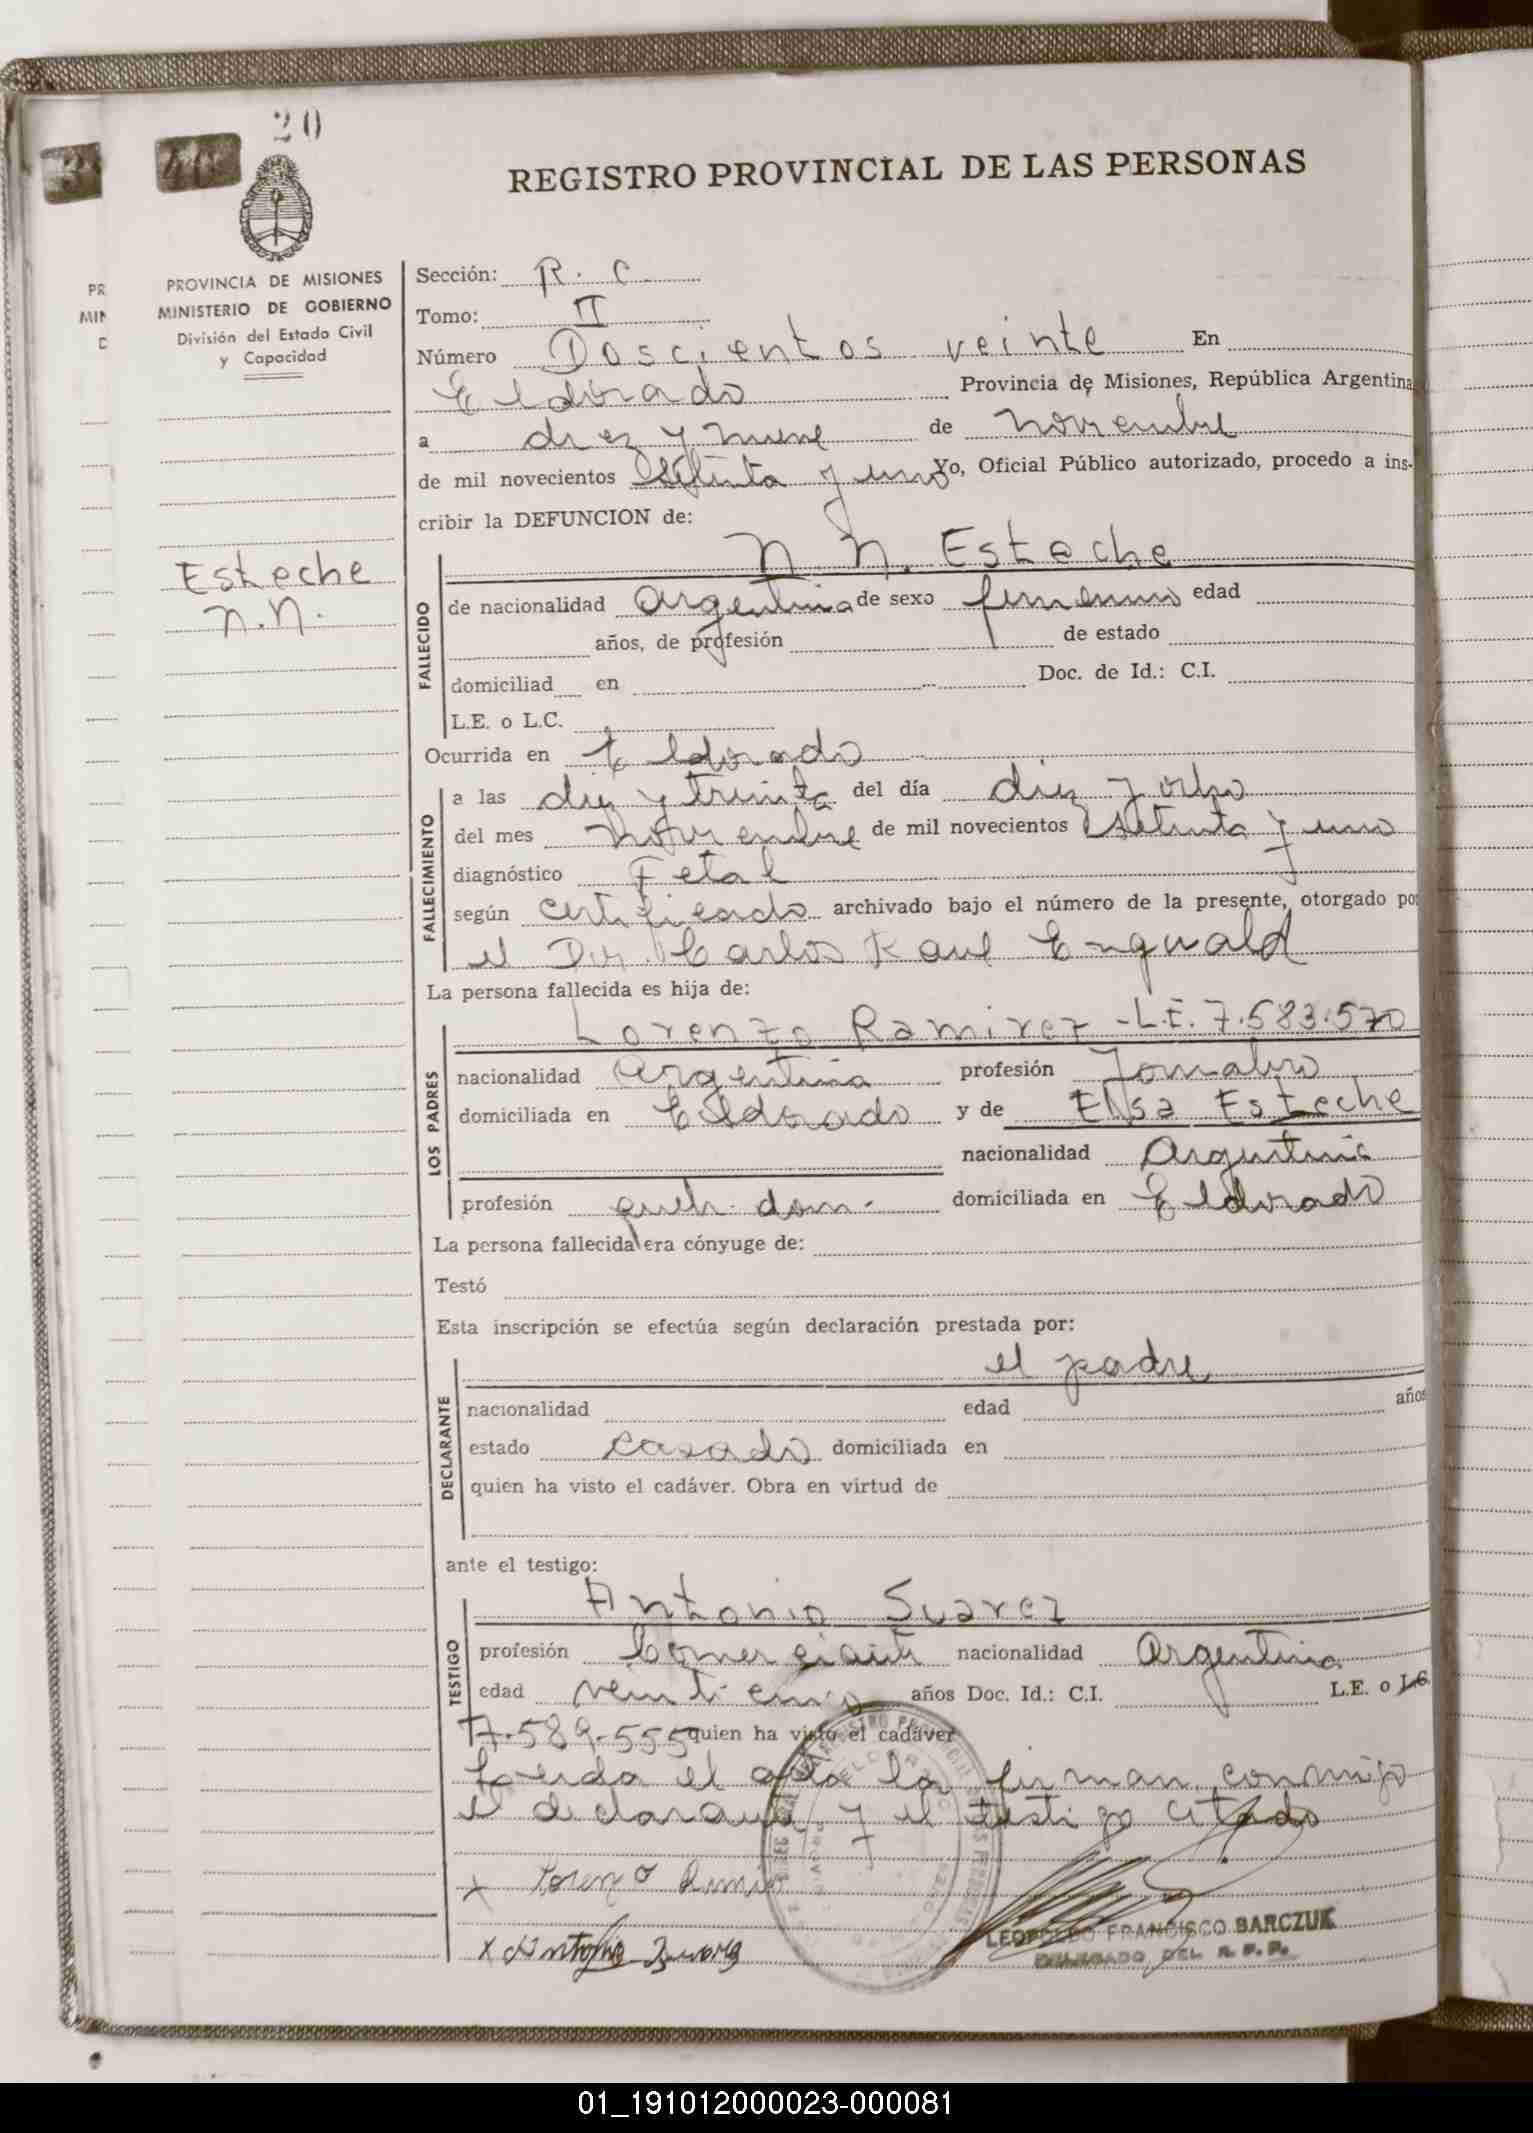 20
REGISTRO PROVINCIAL DE LAS PERSONAS
PROVINCIA DE MISIONES
MINISTERIO DE GOBIERNO
División del Estado Civil
y Capacidad
Esteche
N.N.
Sección: R. C
Tomo: II
Número Doscientos veinte En
Eldorado Provincia de Misiones, República Argentina
a diez y nueve de noviembre
de mil novecientos setenta y uno Yo, Oficial Público autorizado, procedo a ins-
cribir la DEFUNCION de:
N. N. Esteche
FALLECIDO
de nacionalidad Argentina de sexo femenino edad
años, de profesión de estado
domiciliad en Doc. de Id.: C.I.
L.E. o L.C.
Ocurrida en Eldorado
FALLECIMIENTO
a las diez y treinta del día diez y ocho
del mes noviembre de mil novecientos setenta y uno
diagnóstico Fetal
según certificado archivado bajo el número de la presente, otorgado por
el Dr. Carlos Raul Engwald
La persona fallecida es hija de:
LOS PADRES
Lorenzo Ramirez - L.E. 7.583.570
nacionalidad Argentina profesión Jornalero
domiciliada en Eldorado y de Elsa Esteche
nacionalidad Argentina
profesión queh. dom. domiciliada en Eldorado
La persona fallecida era cónyuge de:
Testó
Esta inscripción se efectúa según declaración prestada por:
DECLARANTE
el padre
nacionalidad edad años
estado casado domiciliada en
quien ha visto el cadáver. Obra en virtud de
ante el testigo:
TESTIGO
Antonio Suarez
profesión Comerciante nacionalidad Argentina
edad años Doc. Id.: C.I. L.E. o L.C.
7.589.555 quien ha visto el cadáver
Leida el acta la firman conmigo
el declarante y el testigo citado
x Lorenzo Ramirez
x Antonio Suarez
LEOPOLDO FRANCISCO BARCZUK
DELEGADO DEL R. P. P.
01_191012000023-000081